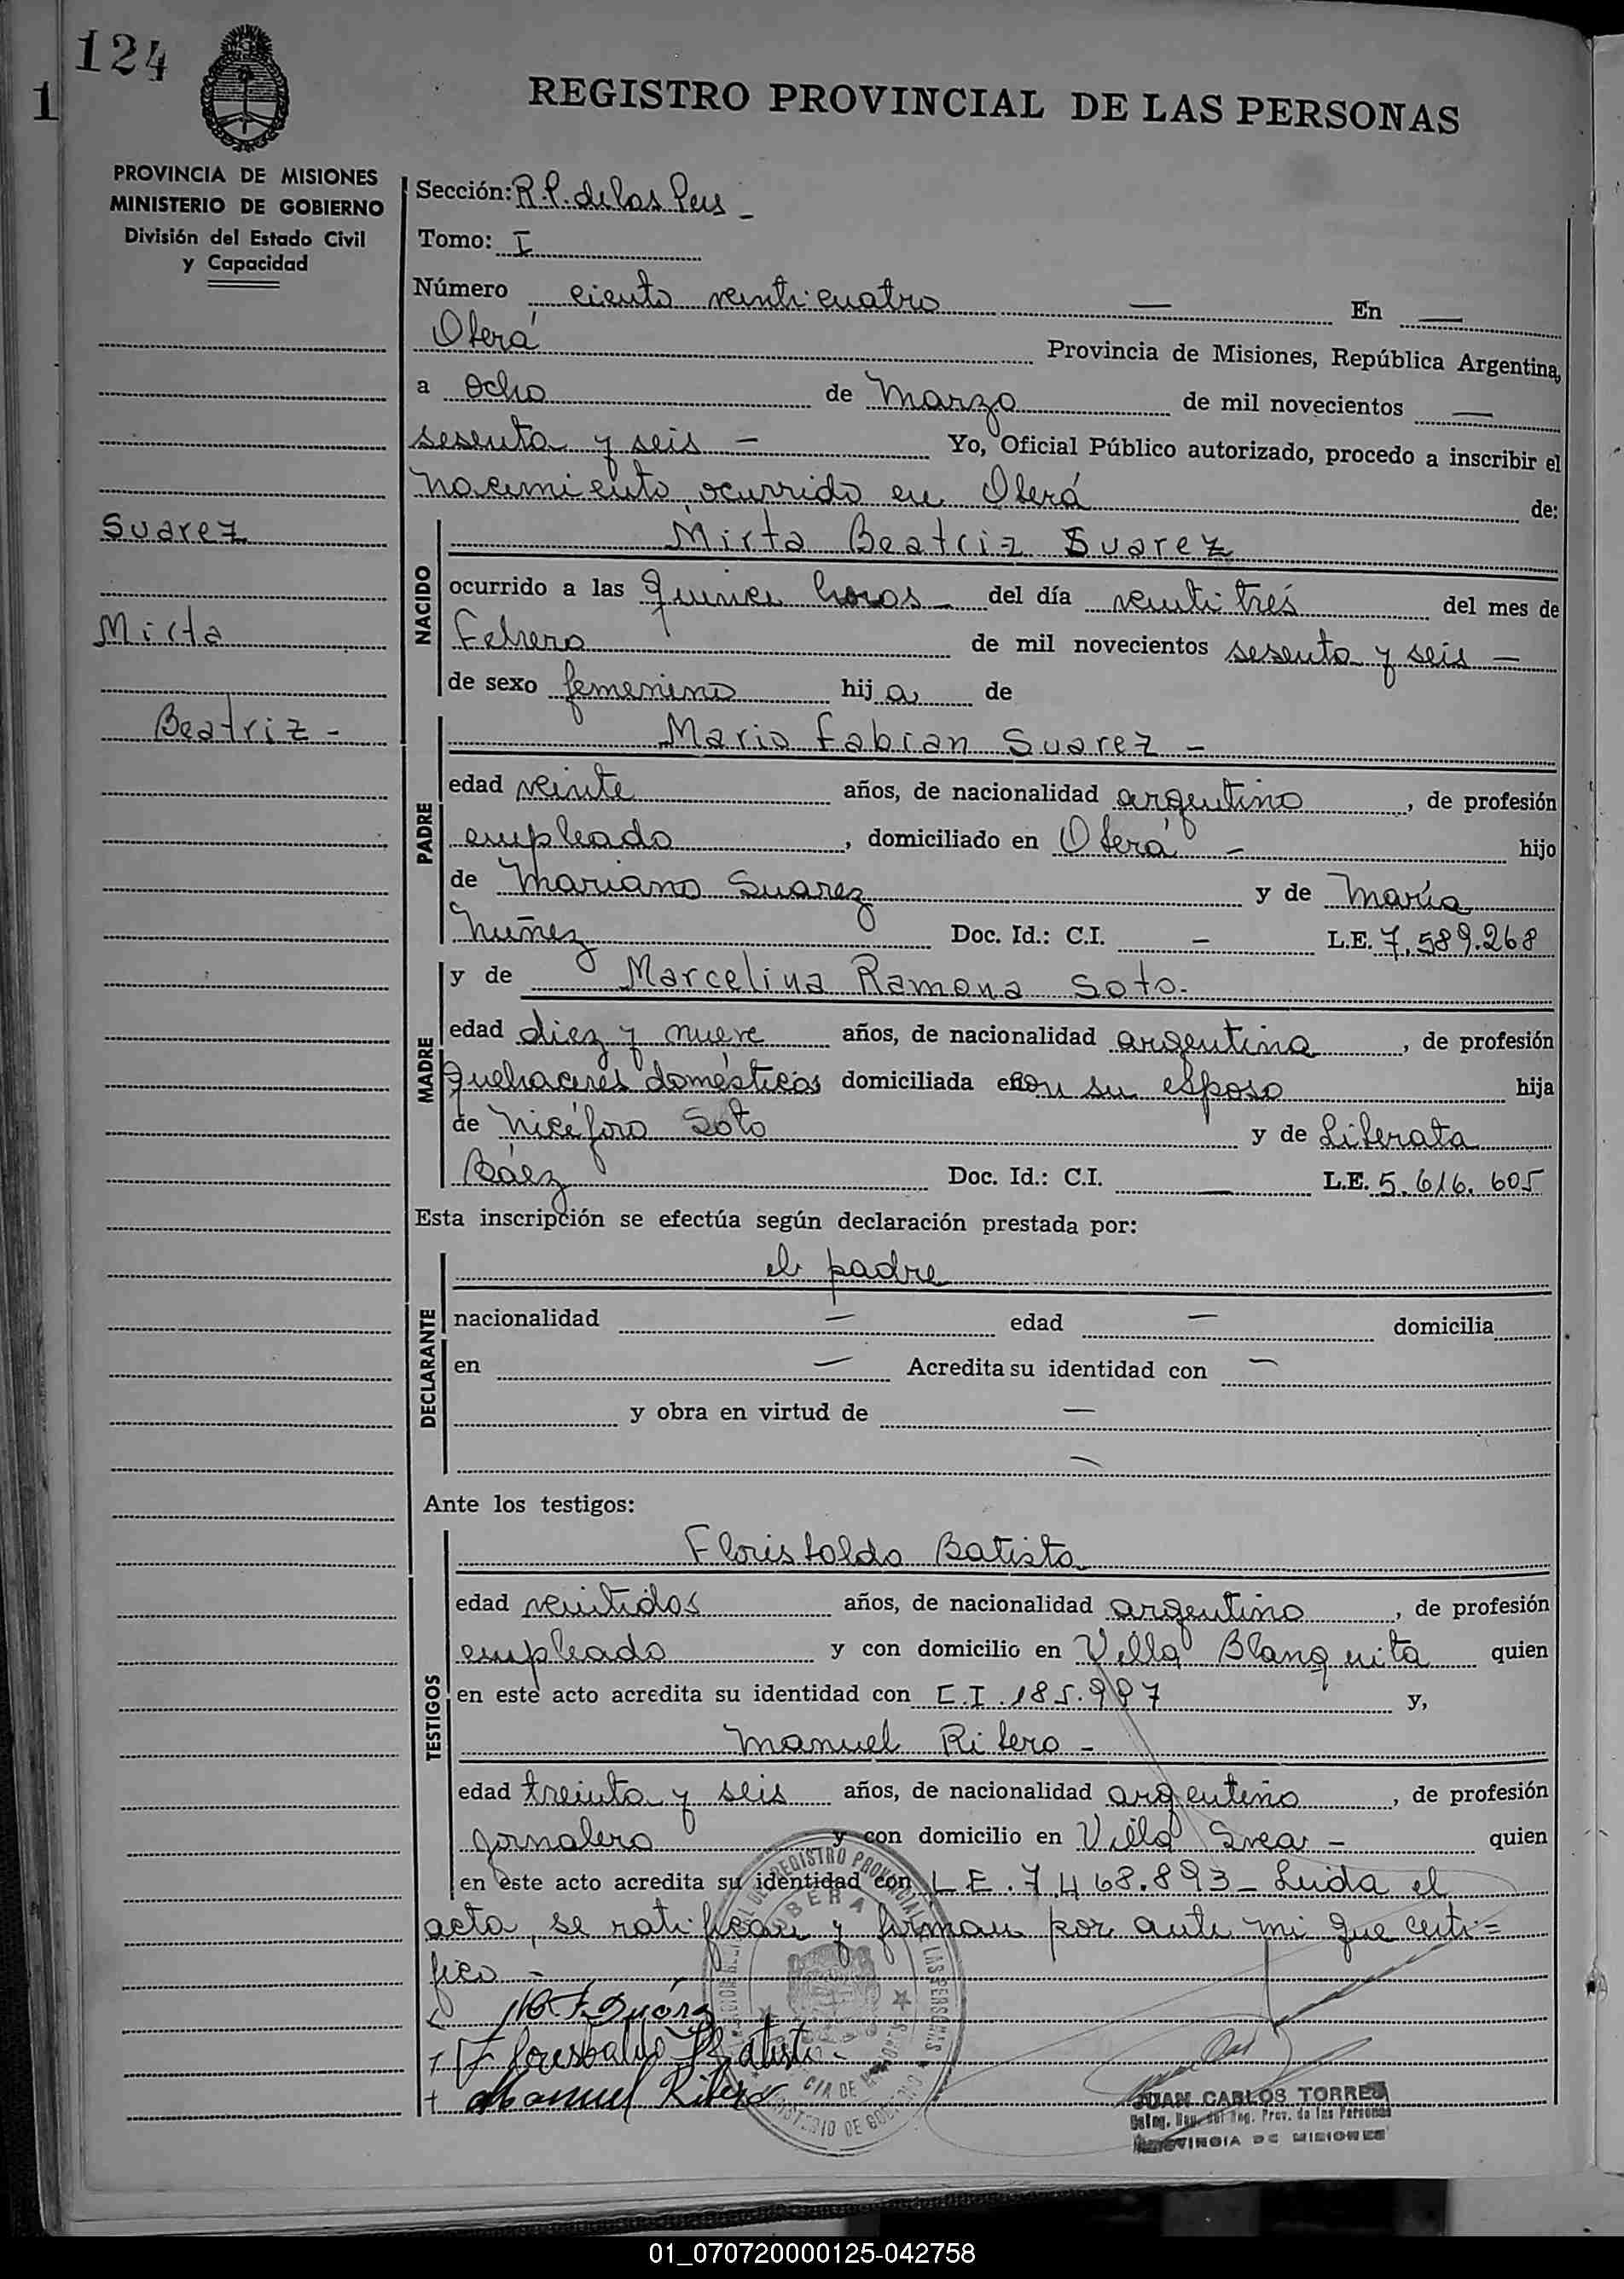 124
1
REGISTRO PROVINCIAL DE LAS PERSONAS
PROVINCIA DE MISIONES
MINISTERIO DE GOBIERNO
División del Estado Civil
y Capacidad
Suarez
Mirta
Beatriz -
Sección: R.P. de las Pers -
Tomo: I
Número ciento veinticuatro — En —
Oberá Provincia de Misiones, República Argentina,
a Ocho de Marzo de mil novecientos —
sesenta y seis — Yo, Oficial Público autorizado, procedo a inscribir el
nacimiento ocurrido en Oberá de:
NACIDO
Mirta Beatriz Suarez
ocurrido a las quince horas — del día veintitrés del mes de
Febrero de mil novecientos sesenta y seis —
de sexo femenino hija de
PADRE
Mario Fabian Suarez -
edad veinte años, de nacionalidad argentino, de profesión
empleado, domiciliado en Oberá - hijo
de Mariano Suarez y de María
Nuñez Doc. Id.: C.I. — L.E. 7.589.268
MADRE
y de Marcelina Ramona Soto.
edad diez y nueve años, de nacionalidad argentina, de profesión
quehaceres domésticos domiciliada con su esposo hija
de Nicéforo Soto y de Liberata
Báez Doc. Id.: C.I. — L.E. 5.616.605
Esta inscripción se efectúa según declaración prestada por:
DECLARANTE
el padre
nacionalidad — edad — domicilia
en — Acredita su identidad con —
y obra en virtud de —
—
Ante los testigos:
TESTIGOS
Florisbaldo Batista
edad veintidos años, de nacionalidad argentino, de profesión
empleado y con domicilio en Villa Blanquita quien
en este acto acredita su identidad con C.I. 185.997 y,
Manuel Ribero -
edad treinta y seis años, de nacionalidad argentino, de profesión
jornalero y con domicilio en Villa Svea - quien
en este acto acredita su identidad con L.E. 7.468.893 - Leida el
acta, se ratifican y firman por ante mi que certi=
fico -
M. F. Suárez
Floresbaldo Batista
Manuel Ribero
REGISTRO PROVINCIAL DE LAS PERSONAS
OBERA
MINISTERIO DE GOBIERNO
JUAN CARLOS TORRES
Reg. Prov. de las Personas
PROVINCIA DE MISIONES
01_070720000125-042758